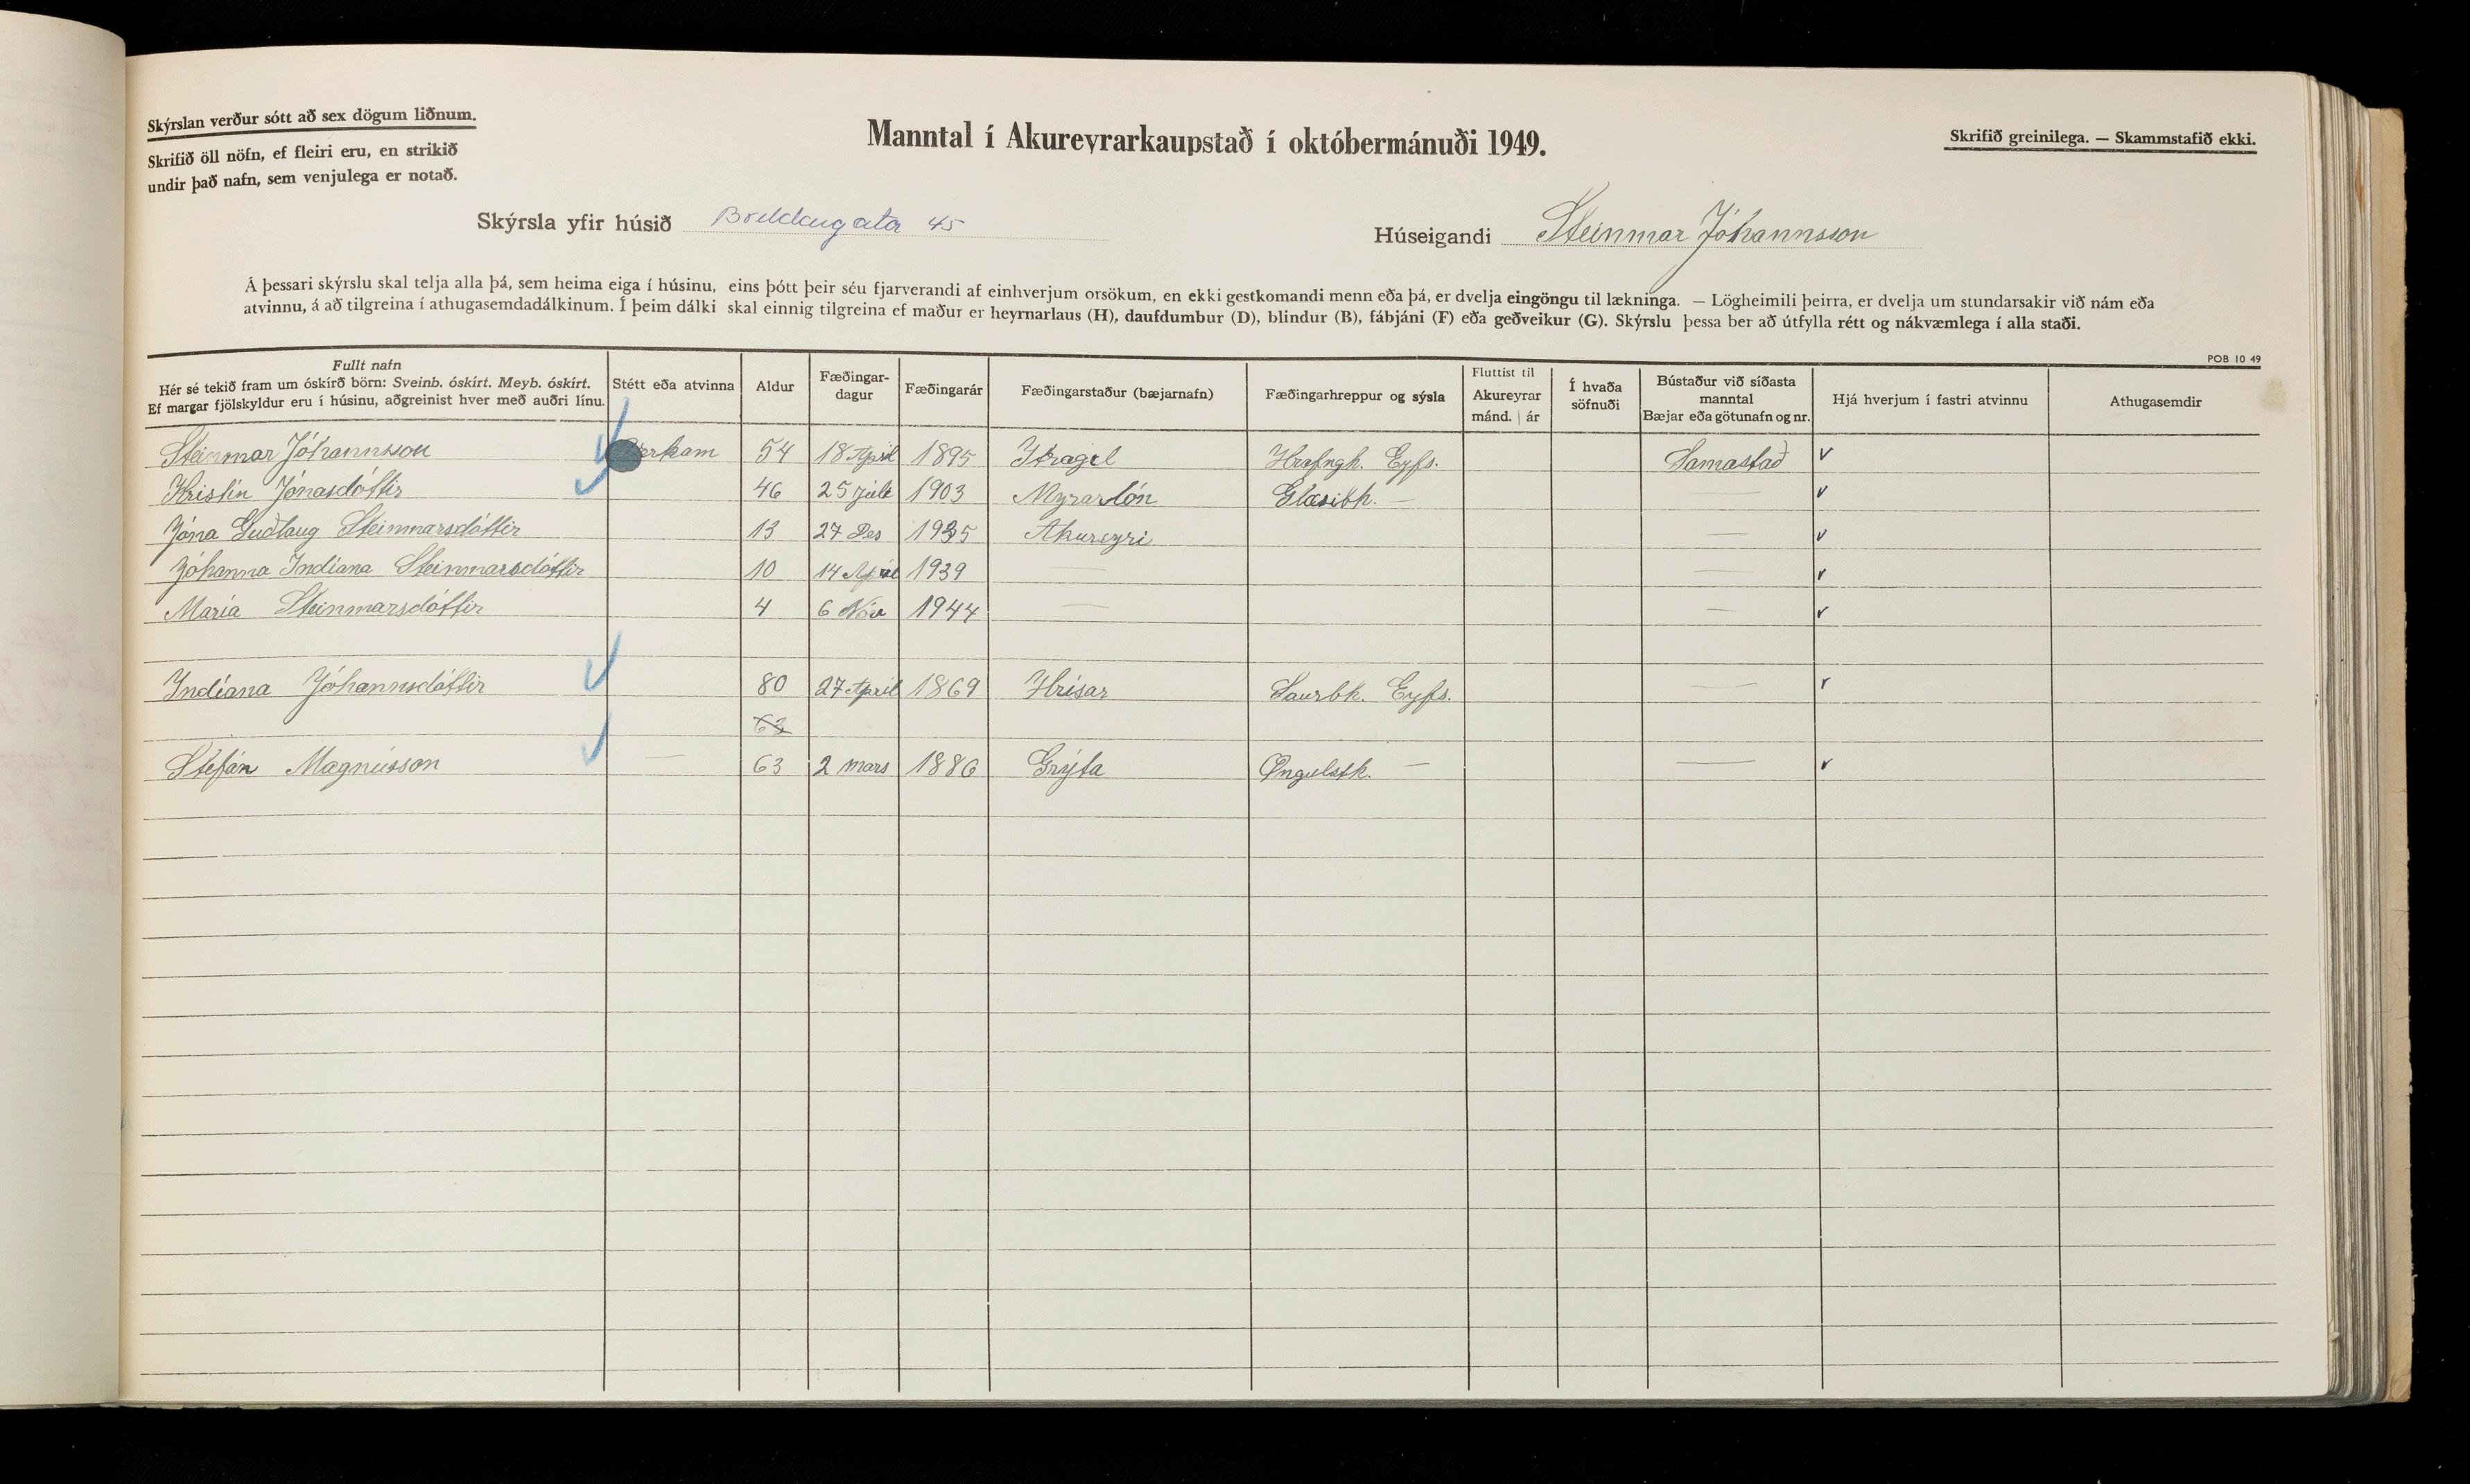 Skýrslan verður sótt að sex dögum liðnum.
Skrifið öll nöfn, ef fleiri eru, en strikið
undir það nafn, sem venjulega er notað.
Manntal í Akureyrarkaupstað í októbermánuði 1949.
Skrifið greinilega. — Skammstafið ekki.
Skýrsla yfir húsið 45
Húseigandi Steinmar Jóhannsson
Á þessari skýrslu skal telja alla þá, sem heima eiga í húsinu, eins þótt þeir séu fjarverandi af einhverjum orsökum, en ekki gestkomandi menn eða þá, er dvelja eingöngu til lækninga. — Lögheimili þeirra, er dvelja um stundarsakir við nám eða
atvinnu, á að tilgreina í athugasemdadálkinum. Í þeim dálki skal einnig tilgreina ef maður er heyrnarlaus (H), daufdumbur (D), blindur (B), fábjáni (F) eða geðveikur (G). Skýrslu þessa ber að útfylla rétt og nákvæmlega í alla staði.
POB 10 49
Fullt nafn
Hér sé tekið fram um óskírð börn: Sveinb. óskírt. Meyb. óskírt.
Ef margar fjölskyldur eru í húsinu, aðgreinist hver með auðri línu.
Stétt eða atvinna
Aldur
Fæðingar-
dagur
Fæðingarár
Fæðingarstaður (bæjarnafn)
Fæðingarhreppur og sýsla
Fluttist til
Akureyrar
mánd. | ár
Í hvaða
söfnuði
Bústaður við síðasta
manntal
Bæjar eða götunafn og nr.
Hjá hverjum í fastri atvinnu
Athugasemdir
Steinmar Jóhannsson 54 18 Apríl 1895 Hrafngh. Eyfs. Samastað
Kristín Jónasdóttir 46 25 Júlí 1903 Myrarlón Glæsibh. —
Jóna Guðlaug Steinmarsdóttir 13 27 Des 1935 Akureyri —
Jóhanna Indíana Steinmarsdóttir 10 14 Apríl 1939 —
María Steinmarsdóttir 4 6 Nóv 1944 — —
Indíana Jóhannsdóttir 80 27 Apríl 1869 Hrísar Saurbh. Eyfs. —
63
Stefán Magnússon — 63 2 mars 1886 Grýta Öngulsth. — —